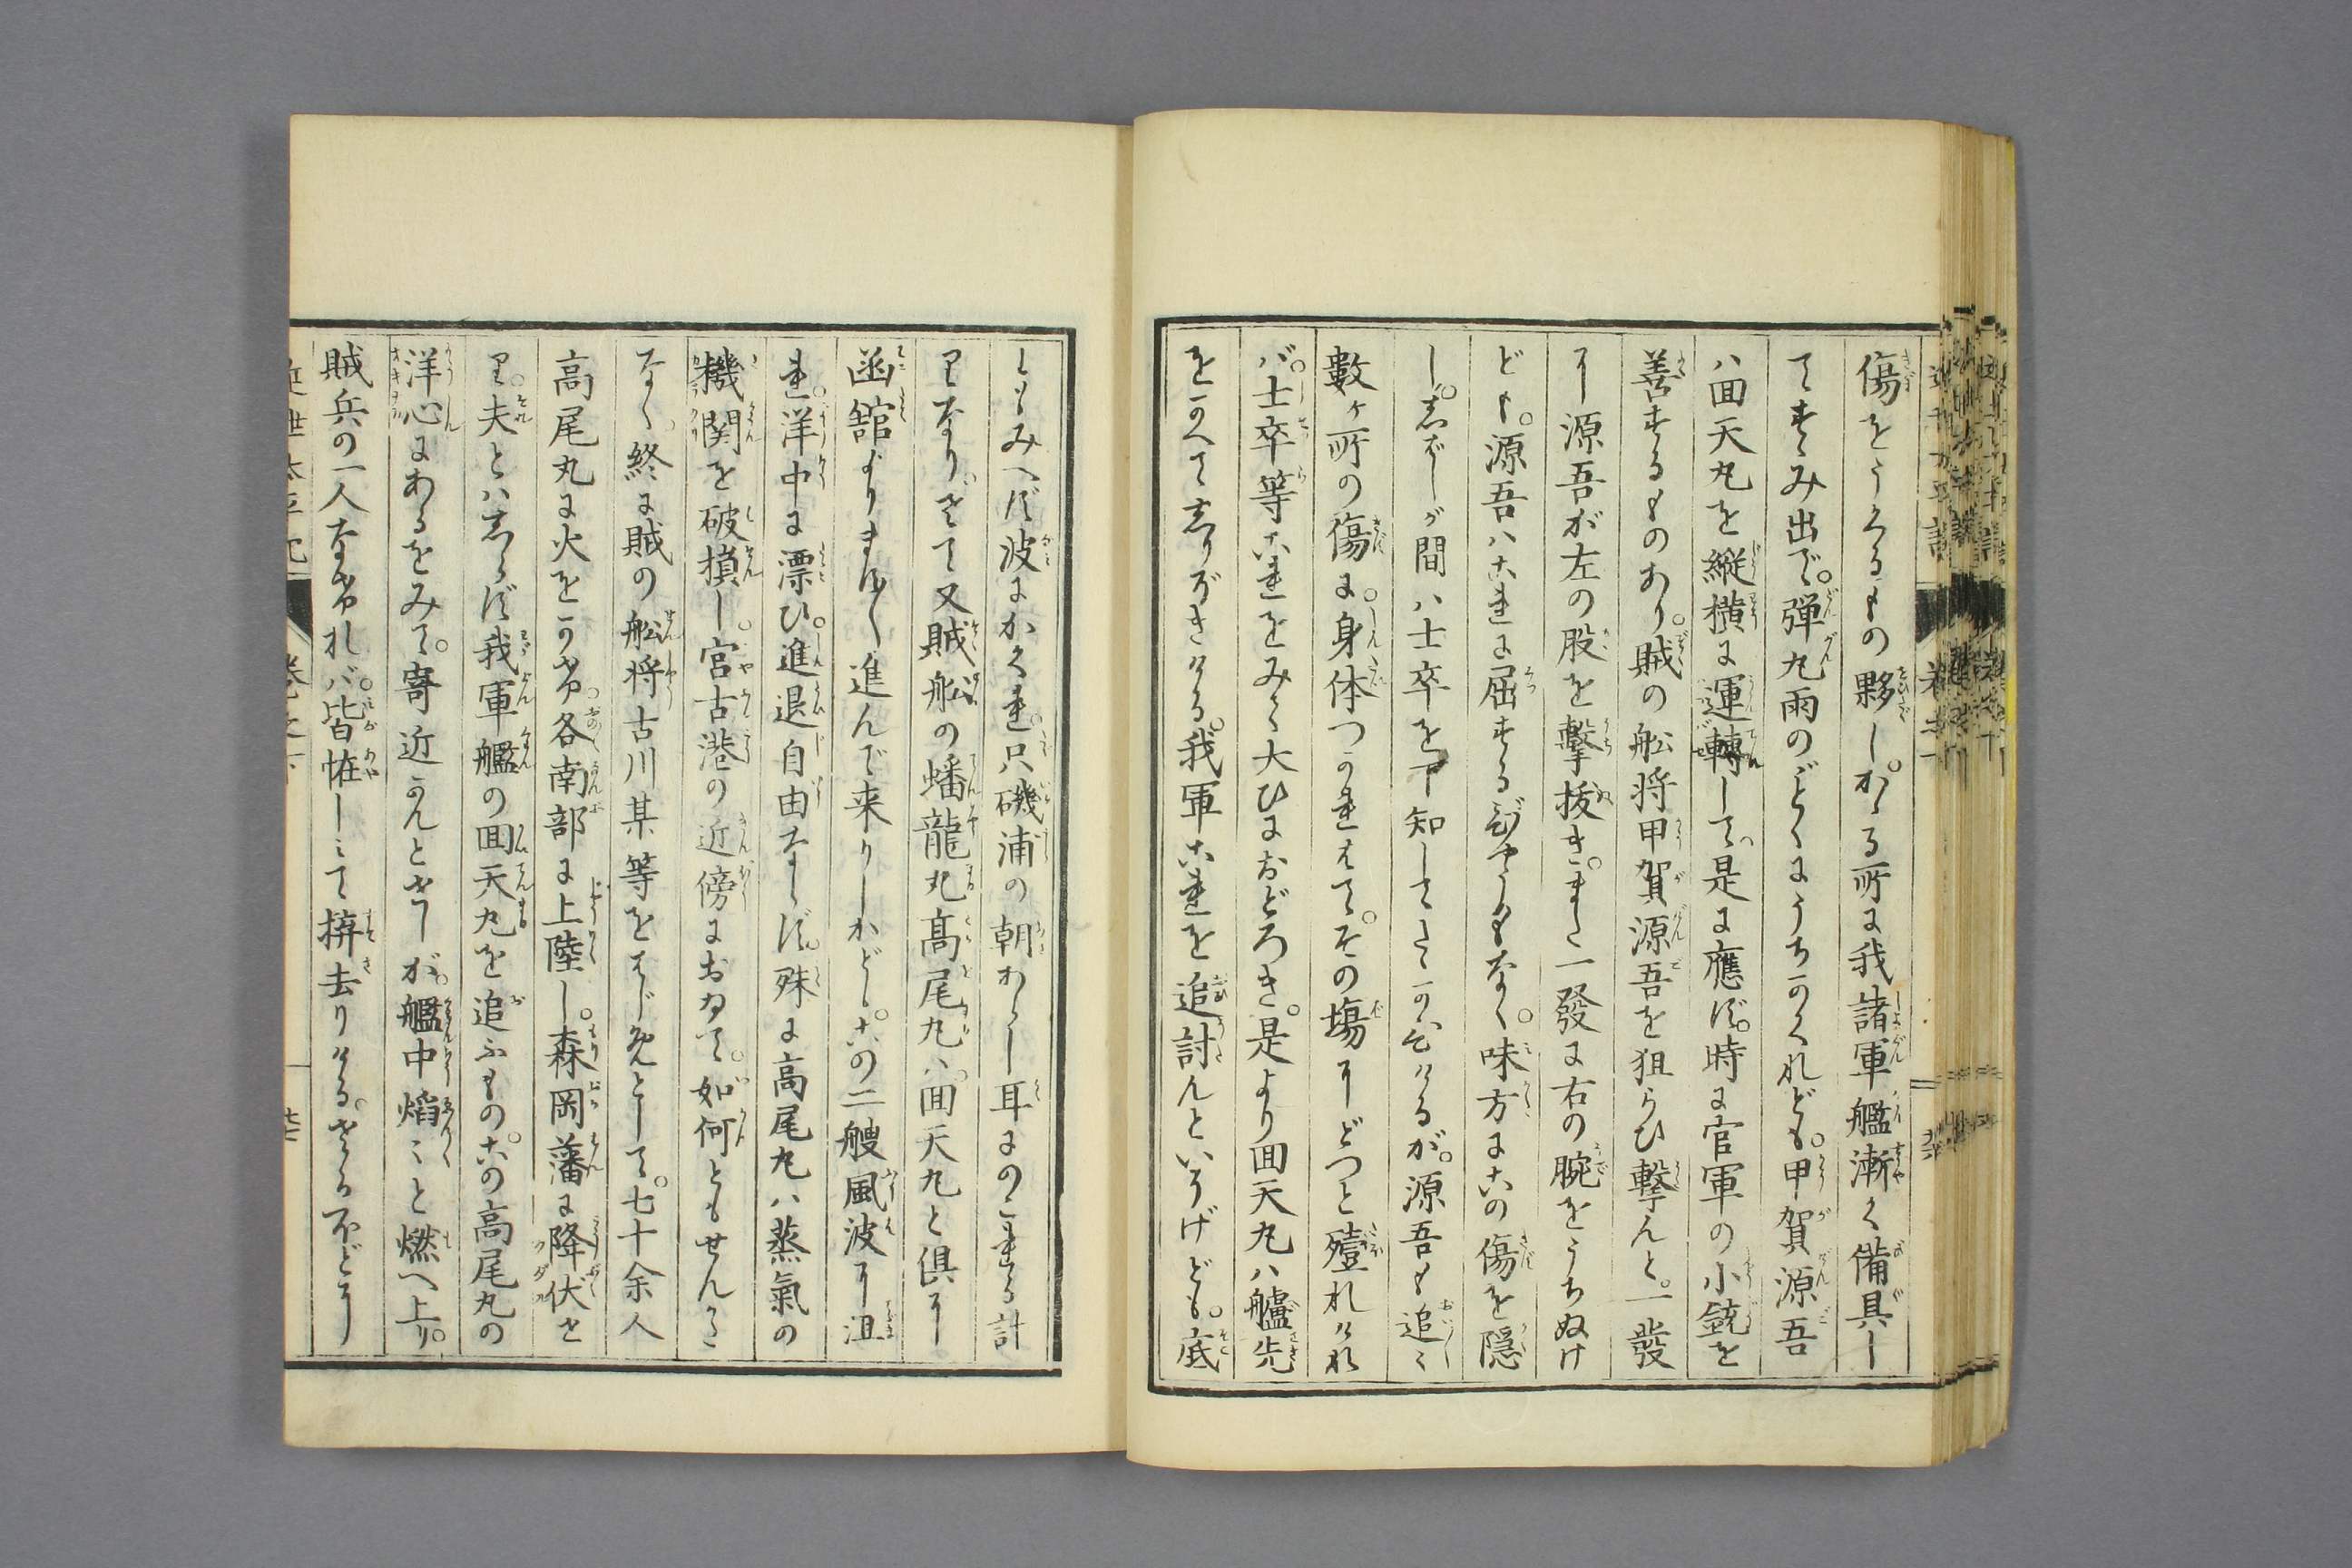 傷をうくるもの夥し。かゝる所に我諸軍艦漸く備具し
てすゝみ出で。弾丸雨のごとくにうちかくれども。甲賀源吾
ハ回天丸を縦横に運轉して。是に應ず。時に官軍の小銃を
善するものあり。賊の舩将甲賀源吾を狙らひ撃んと。一發
に源吾が左の股を撃抜き。また一發に右の腕をうちぬけ
ども。源吾ハこれに屈する氣色もなく。味方にこの傷を隠
し。しばしが間ハ士卒を下知してたゝかひけるが。源吾も追々
數ヶ所の傷に。身体つかれはて。その場にどつと殪れけれ
バ。士卒等これをみて大ひにおどろき。是より回天丸ハ艫先
をかへてしりぞきける。我軍これを追討んといそげども。底
しもみへず波にかくれ。只磯浦の朝あらし耳にのこれる計
りなり。さて又賊舩の蟠龍丸高尾丸ハ。回天丸と倶に
函館よりまはし進んで来りしかども。この二艘風波に沮
れ。洋中に漂ひ。進退自由ならず。殊に高尾丸ハ蒸氣の
機関を破損し。宮古港の近傍において。如何ともせんかた
なく。終に賊の舩将古川某等をはじめとして。七十余人
高尾丸に火をかけ。各南部に上陸し。森岡藩に降伏せ
り。夫とハしらず我軍艦の回天丸を追ふもの。この高尾丸の
洋心にあるをみて。寄近かんとせしが。艦中焔々と燃へ上り。
賊兵の一人なけれバ。皆恠しみて捹去りける。さるほどに